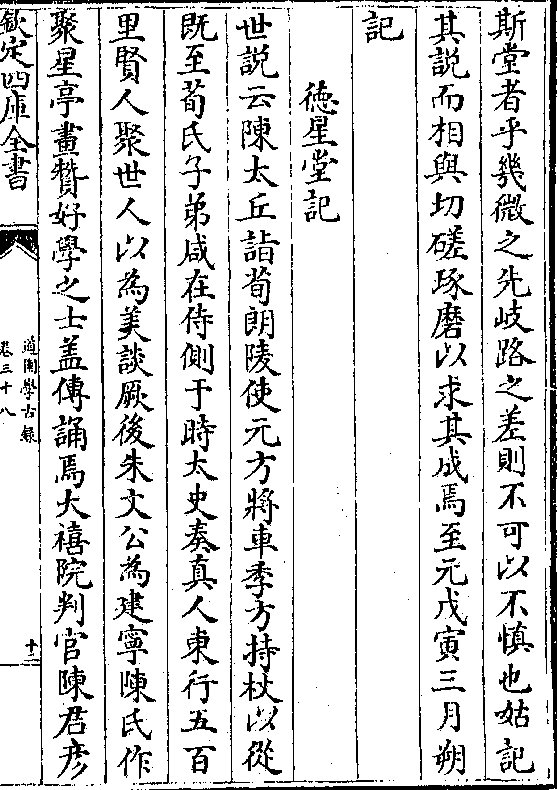 斯堂者乎幾微之先岐路之差則不可以不慎也姑記
其説而相與切磋琢磨以求其成焉至元戊寅三月朔
記
徳星堂記
世説云陳太丘詣荀朗陵使元方將車季方持杖以從
既至荀氏子弟咸在侍側于時太史奏真人東行五百
里賢人聚世人以為美談厥後朱文公為建寧陳氏作
聚星亭畫贊好學之士盖傳誦焉大禧院判官陳君彦
欽定四庫全書
道園學古錄
卷三十八
十二